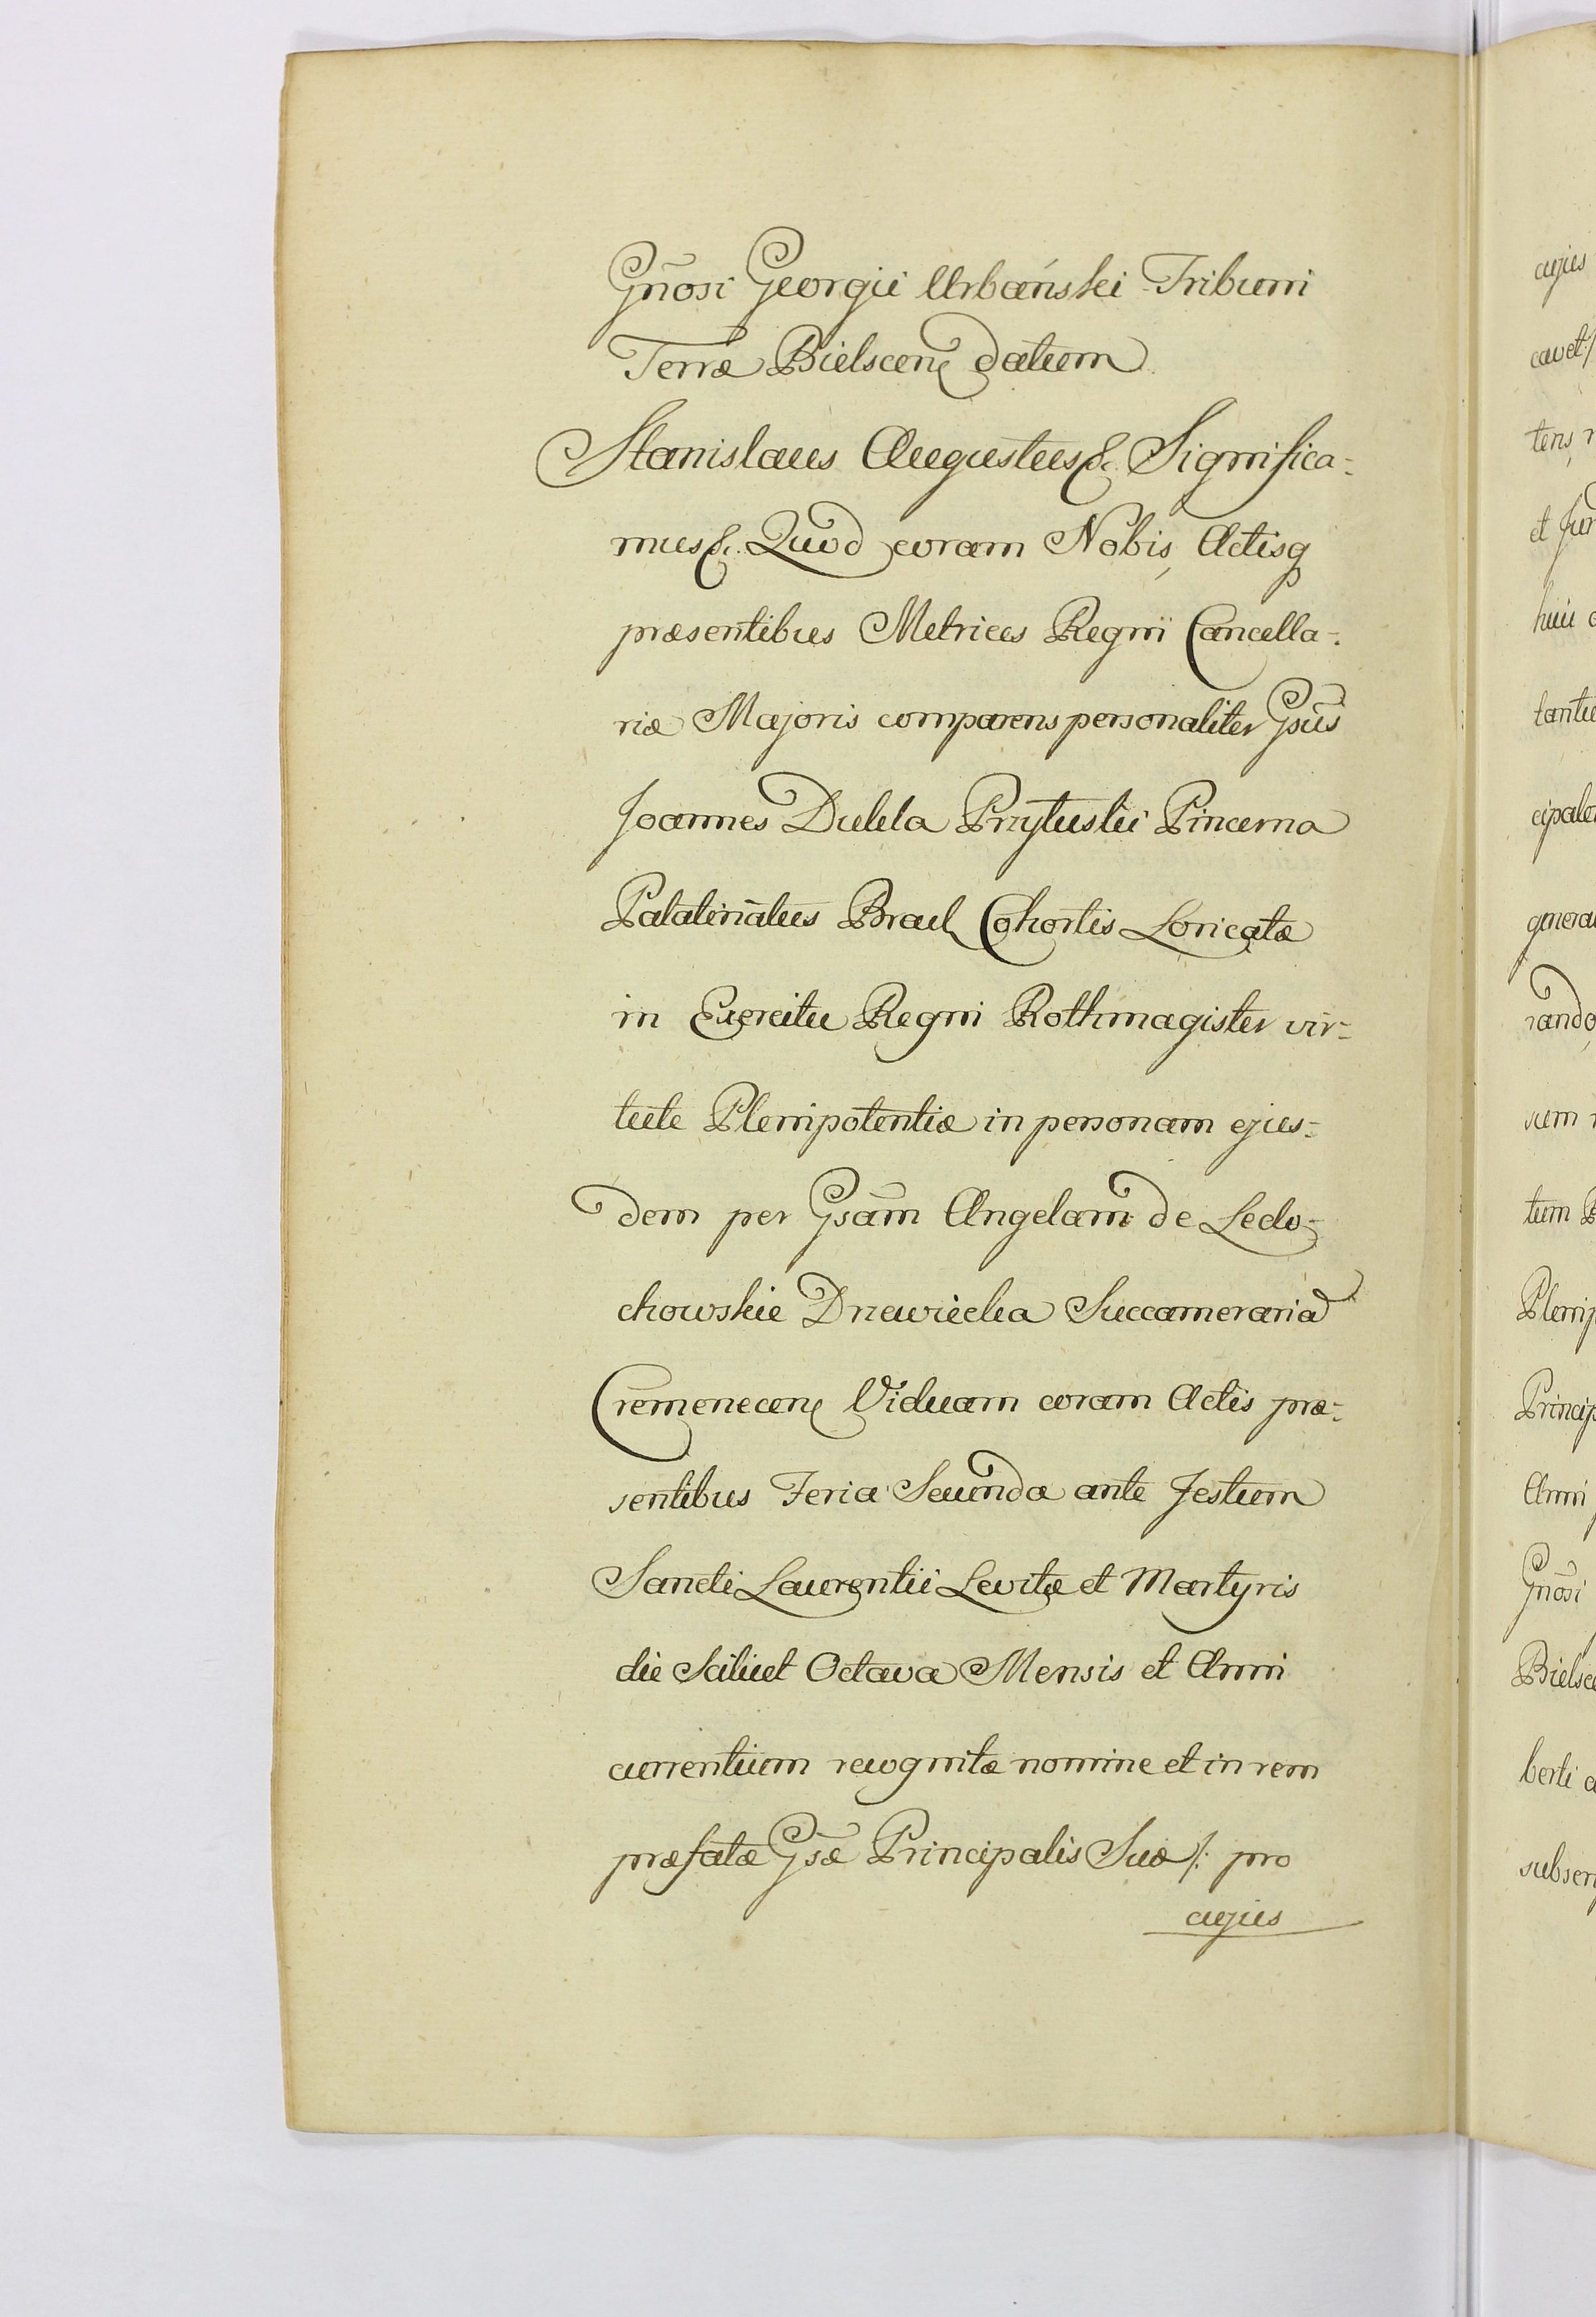 Gñosi Georgii Urbański Tribuni
Terræ Bielscen̄ datum
Stanislaus Augustus &c. Significa-
mus &c. Quod coram Nobis, Actisq
præsentibus Metrices Regni Cancella-
riæ Majoris comparens personaliter Gsūs
Joannes Duklla Przyłuski Pincerna
Palatinatus Bracł Cohortis Loricatæ
in Exercitu Regni Rothmagister vir-
tute Plenipotentiæ in personam ejus-
dem per Gsām Angelam de Ledo-
chowskie Drzewiecka Succameraria
Cremenecen̄ Viduam coram Actis præ-
sentibus Feria Secunda ante Festum
Sancti Laurentii Levitæ et Martyris
die Scilicet Octava Mensis et Anni
currentium recognitæ nomine et in rem
præfatæ Gsæ̃ Principalis Suæ /: pro
cujus
cujus
cavet /
tens,
et Jur
huic
cipale
genera
rando
sum
tum
Plenip
Princip
Anni
Gnōsi
Bielsce
berti
subscr